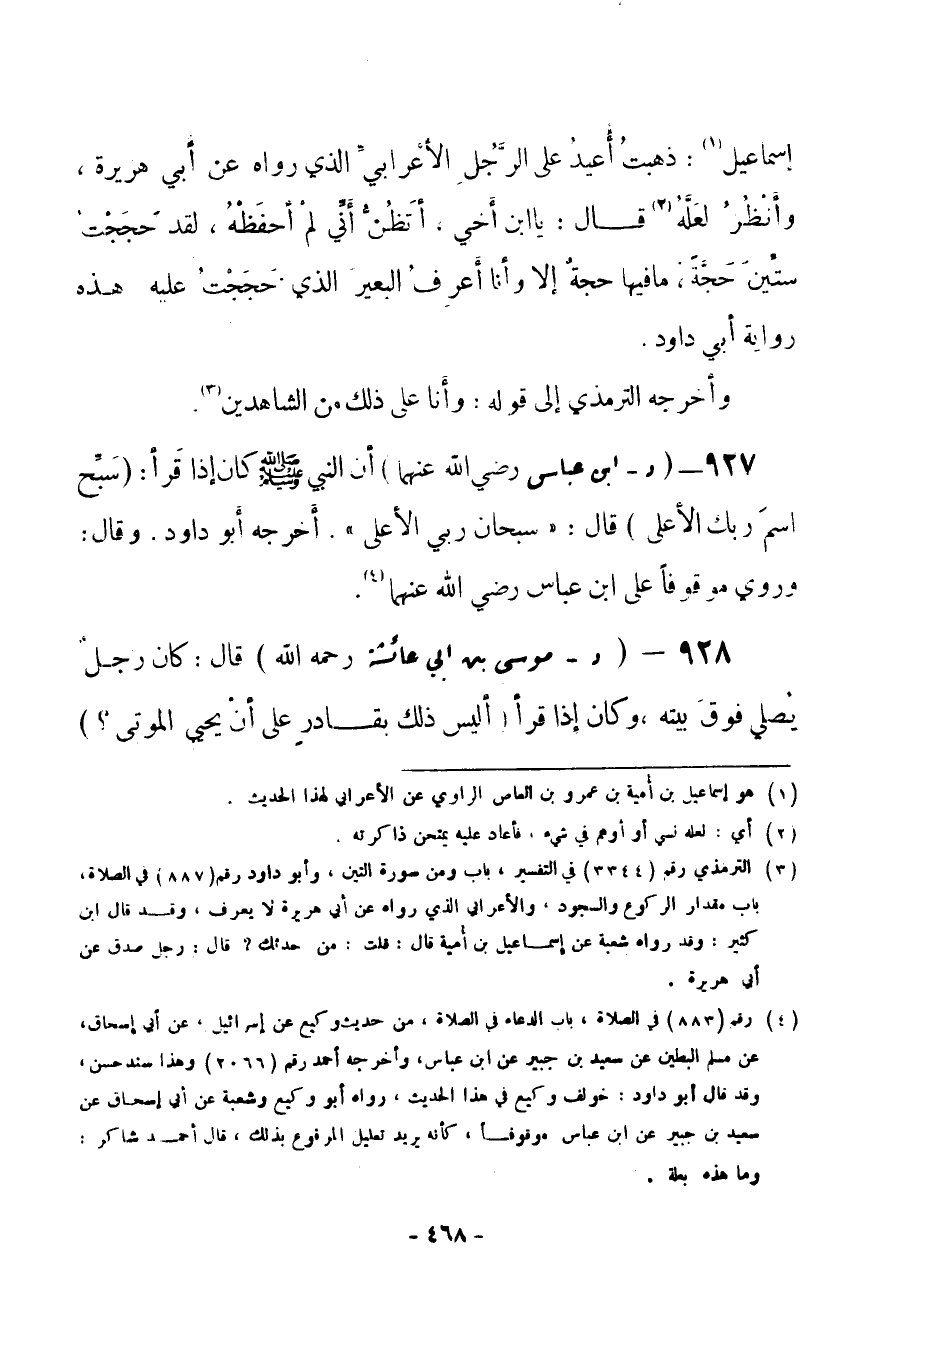 إسماعيل(١) : ذهبتُ أُعيدُ على الرَّجُلِ الأعْرابيِّ الذي رواه عن أَبي هريرة ،
وأَنْظُرُ لعَلَّهُ(٢) قال : ياابن أَخي ، أَتَظُنُّ أَنِّي لمْ أَحفَظْهُ ، لقد حَجَجْتُ
ستِّينَ حَجَّةً ، مافيها حجةٌ إلا وأَنا أَعرفُ البعيرَ الذي حَجَجْتُ عليه هذه
رواية أَبي داود .
وأَخرجه الترمذي إلى قوله : وأَنا على ذلك من الشاهدين(٣) .
٩٢٧ – ( د - ابن عباس رضي الله عنهما ) أَن النبي ﷺ كان إذا قَرأَ : ( سَبِّح
اسمَ ربك الأعلى ) قال : « سبحان ربي الأعلى » . أَخرجه أبو داود . وقال :
وروي موقوفاً على ابن عباس رضي الله عنهما(٤) .
٩٢٨ – ( د - موسى بن ابي عائشة رحمه الله ) قال : كان رجلٌ
يُصلي فوقَ بيته ، وكان إذا قرأَ ( أَليس ذلك بقادرٍ على أَنْ يحيي الموتى ؟ )
(١) هو إسماعيل بن أمية بن عمرو بن العاص الراوي عن الأعرابي لهذا الحديث .
(٢) أي : لعله نسي أو أوهم في شيء ، فأعاد عليه يمتحن ذاكرته .
(٣) الترمذي رقم (٣٣٤٤) في التفسير ، باب ومن سورة التين ، وأبو داود رقم (٨٨٧) في الصلاة ،
باب مقدار الركوع والسجود ، والأعرابي الذي رواه عن أبي هريرة لا يعرف ، وقد قال ابن
كثير : وقد رواه شعبة عن إسماعيل بن أمية قال : قلت : من حدثك ؟ قال : رجل صدق عن
أبي هريرة .
(٤) رقم (٨٨٣) في الصلاة ، باب الدعاء في الصلاة ، من حديث وكيع عن إسرائيل ، عن أبي إسحاق ،
عن مسلم البطين عن سعيد بن جبير عن ابن عباس ، وأخرجه أحمد رقم (٢٠٦٦) وهذا سند حسن ،
وقد قال أبو داود : خولف وكيع في هذا الحديث ، رواه أبو وكيع وشعبة عن أبي إسحاق عن
سعيد بن جبير عن ابن عباس موقوفاً ، كأنه يريد تعليل المرفوع بذلك ، قال أحمد شاكر :
وما هذه بعلة .
- ٤٦٨ -